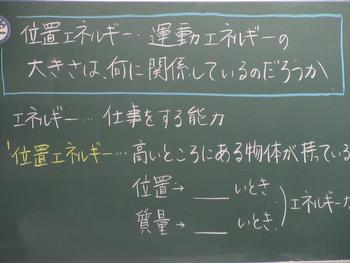 位置エネルギー・運動エネルギーの
大きさは、何に関係しているのだろうか
エネルギー… 仕事をする能力
位置エネルギー… 高いところにある物体が持っている
位置→ ＿＿ いとき
質量→ ＿＿ いとき
エネルギーが